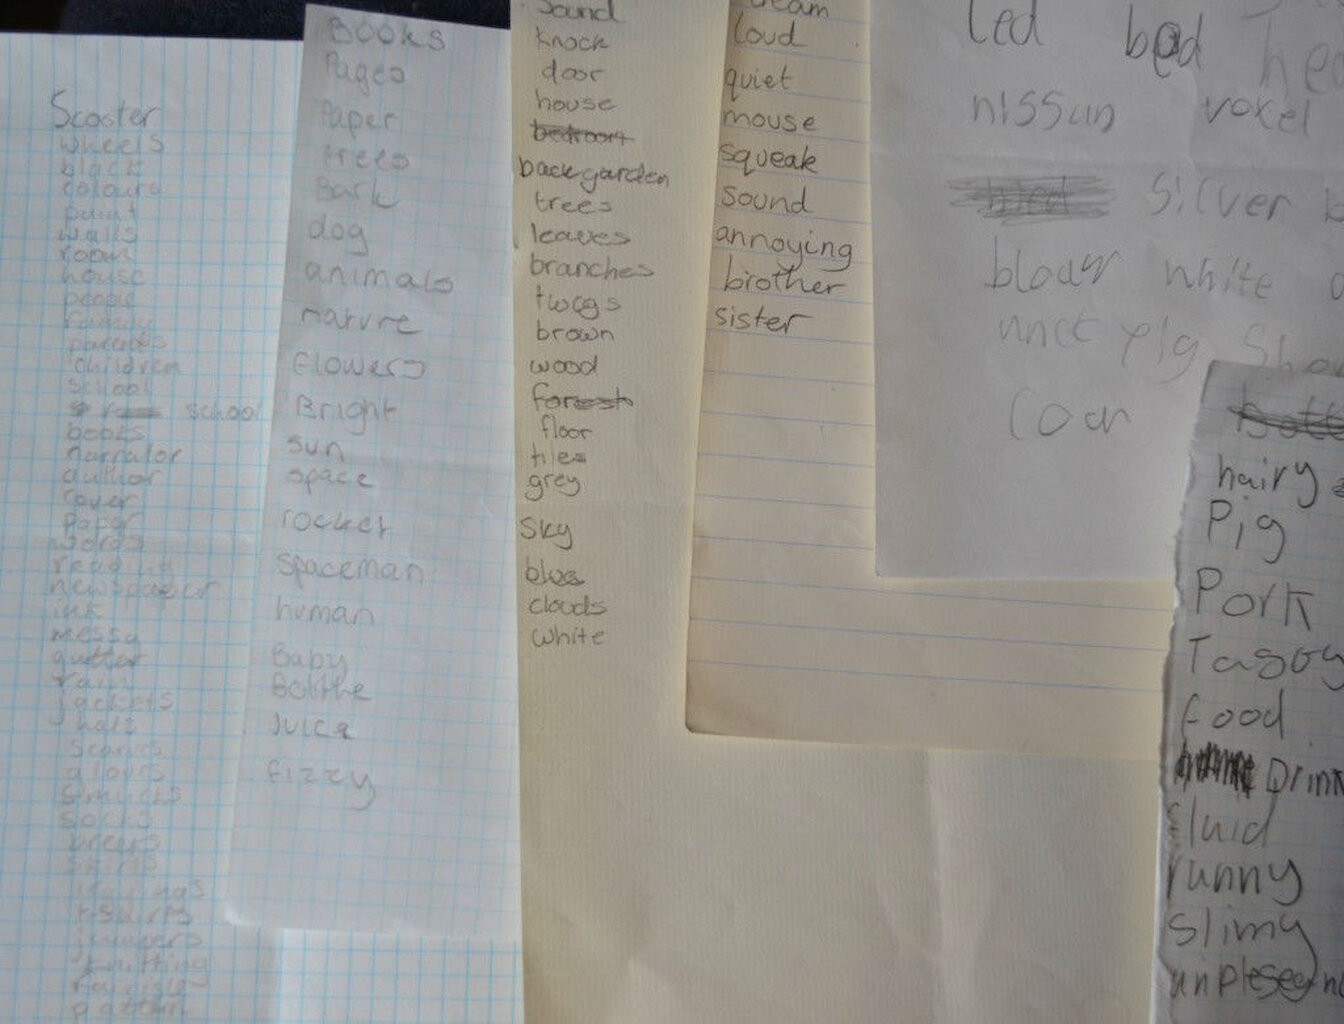 Scooter
wheels
black
colours
paint
walls
room
house
people
family
children
school
school
books
narrator
author
cover
paper
words
reading
newspaper
ink
messy
gutter
rain
jackets
hats
scarves
gloves
socks
skirts
t-shirts
jumpers
knitting
pattern
Books
Pages
Paper
trees
Bark
dog
animals
narure
Flowers
Bright
sun
space
rocket
spaceman
human
Baby
Juice
fizzy
Sound
knock
door
house
bedroom
backgarden
trees
leaves
branches
twigs
brown
wood
forest
floor
tiles
grey
sky
blue
clouds
white
loud
quiet
mouse
squeak
sound
annoying
brother
sister
led bed
nissun voxel
silver
white
pig
hairy
Pig
Pork
food
Drink
fluid
runny
slimy